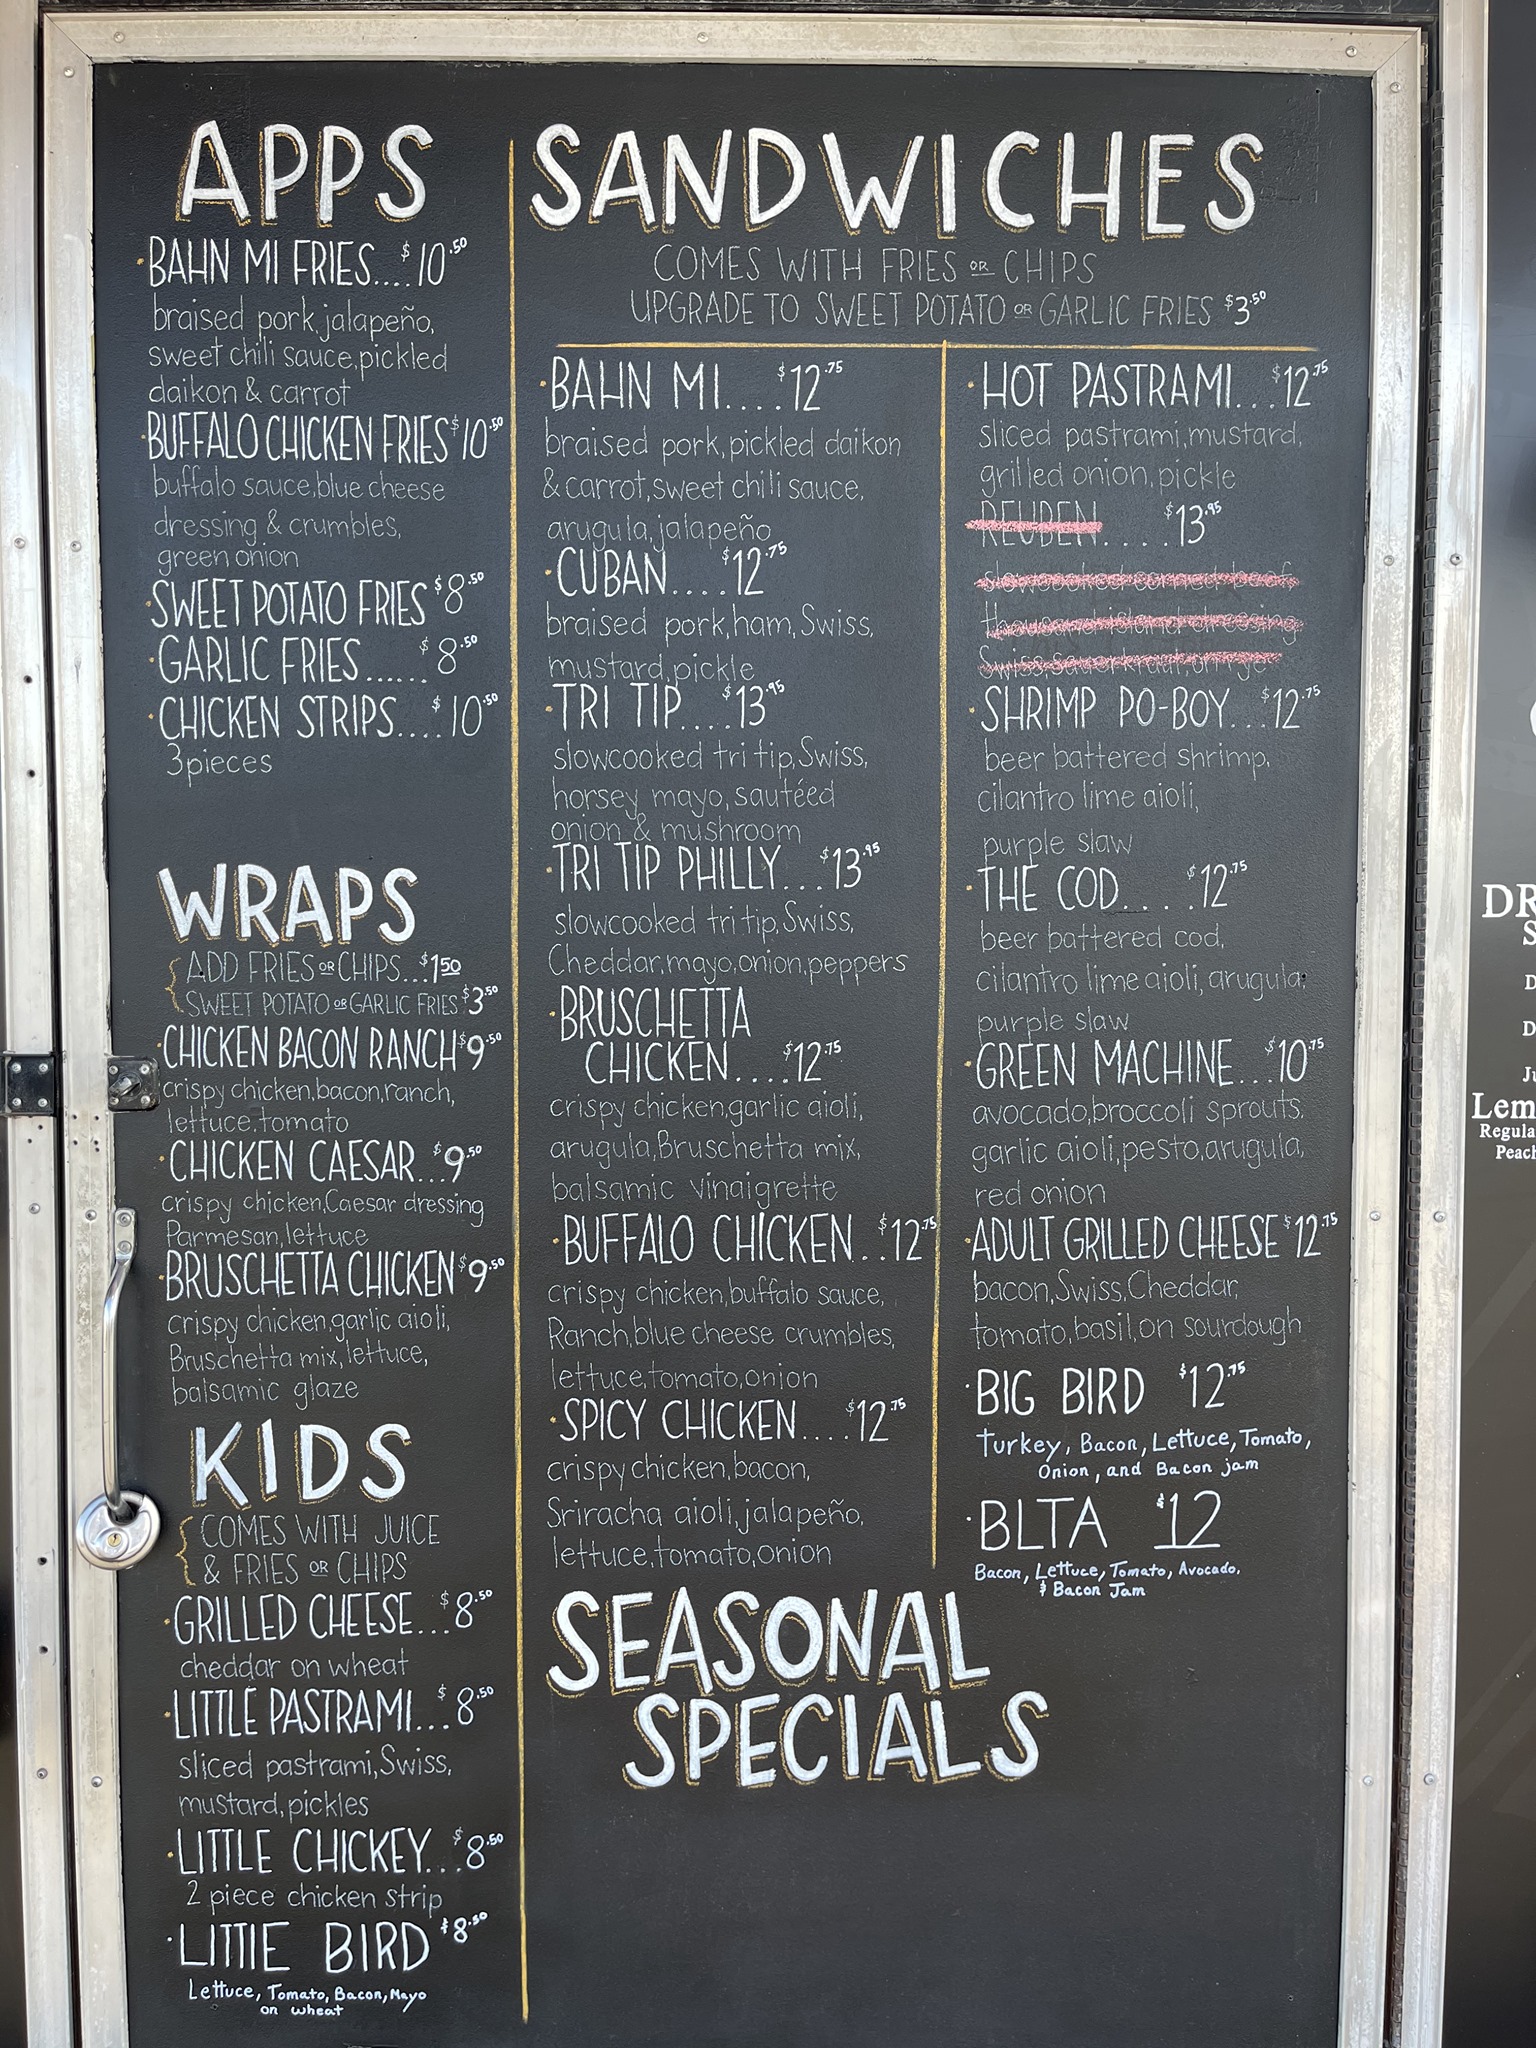 APPS
BAHN MI FRIES....$10.50
braised pork, jalapeño,
sweet chili sauce, pickled
daikon & carrot
BUFFALO CHICKEN FRIES $10.50
buffalo sauce, blue cheese
dressing & crumbles,
green onion
SWEET POTATO FRIES $8.50
GARLIC FRIES...... $8.50
CHICKEN STRIPS.... $10.50
3 pieces
WRAPS
ADD FRIES OR CHIPS...$1.50
SWEET POTATO OR GARLIC FRIES $3.50
CHICKEN BACON RANCH $9.50
crispy chicken, bacon, ranch,
lettuce, tomato
CHICKEN CAESAR...$9.50
crispy chicken, Caesar dressing
Parmesan, lettuce
BRUSCHETTA CHICKEN $9.50
crispy chicken, garlic aioli,
Bruschetta mix, lettuce,
balsamic glaze
KIDS
COMES WITH JUICE
& FRIES OR CHIPS
GRILLED CHEESE...$8.50
cheddar on wheat
LITTLE PASTRAMI...$8.50
sliced pastrami, Swiss,
mustard, pickles
LITTLE CHICKEY...$8.50
2 piece chicken strip
LITTlE BIRD $8.50
Lettuce, Tomato, Bacon, Mayo
on wheat
SANDWICHES
COMES WITH FRIES OR CHIPS
UPGRADE TO SWEET POTATO OR GARLIC FRIES $3.50
BAHN MI....$12.75
braised pork, pickled daikon
& carrot, sweet chili sauce,
arugula, jalapeño
CUBAN....$12.75
braised pork, ham, Swiss,
mustard, pickle
TRI TIP....$13.95
slowcooked tri tip, Swiss,
horsey mayo, sautéed
onion & mushroom
TRI TIP PHILLY...$13.95
slowcooked tri tip, Swiss,
Cheddar, mayo, onion, peppers
BRUSCHETTA
CHICKEN....$12.75
crispy chicken, garlic aioli,
arugula, Bruschetta mix,
balsamic vinaigrette
BUFFALO CHICKEN..$12.75
crispy chicken, buffalo sauce,
Ranch, blue cheese crumbles,
lettuce, tomato, onion
SPICY CHICKEN....$12.75
crispy chicken, bacon,
Sriracha aioli, jalapeño,
lettuce, tomato, onion
HOT PASTRAMI...$12.75
sliced pastrami, mustard,
grilled onion, pickle
REUBEN....$13.95
slowcooked corned beef,
thousand island dressing,
Swiss, sauerkraut, on rye
SHRIMP PO-BOY...$12.75
beer battered shrimp,
cilantro lime aioli,
purple slaw
THE COD....$12.75
beer battered cod,
cilantro lime aioli, arugula,
purple slaw
GREEN MACHINE...$10.75
avocado, broccoli sprouts,
garlic aioli, pesto, arugula,
red onion
ADULT GRILLED CHEESE $12.75
bacon, Swiss, Cheddar,
tomato, basil, on sourdough
BIG BIRD $12.75
Turkey, Bacon, Lettuce, Tomato,
Onion, and Bacon jam
BLTA $12
Bacon, Lettuce, Tomato, Avocado,
& Bacon Jam
SEASONAL
SPECIALS